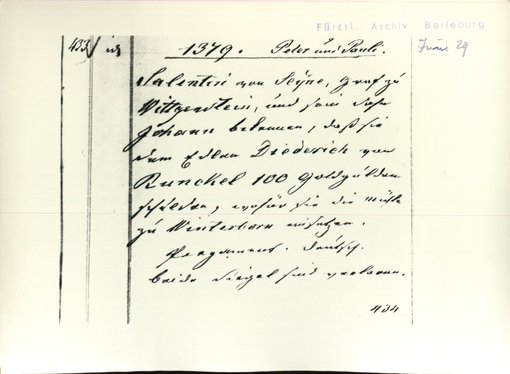 Fürstl. Archiv Berleburg
Juni 29
433
1379. Peter und Pauli.
Salentin von Seyne, Graf zu
Wittgenstein, und sein Sohn
Johann bekennen, daß sie
dem Edlen Diederich von
Runckel 100 Goldgulden
schulden, wofür sie die Mühle
zu Winterborn einsetzen.
Pergament. Deutsch.
beide Siegel sind verloren.
434